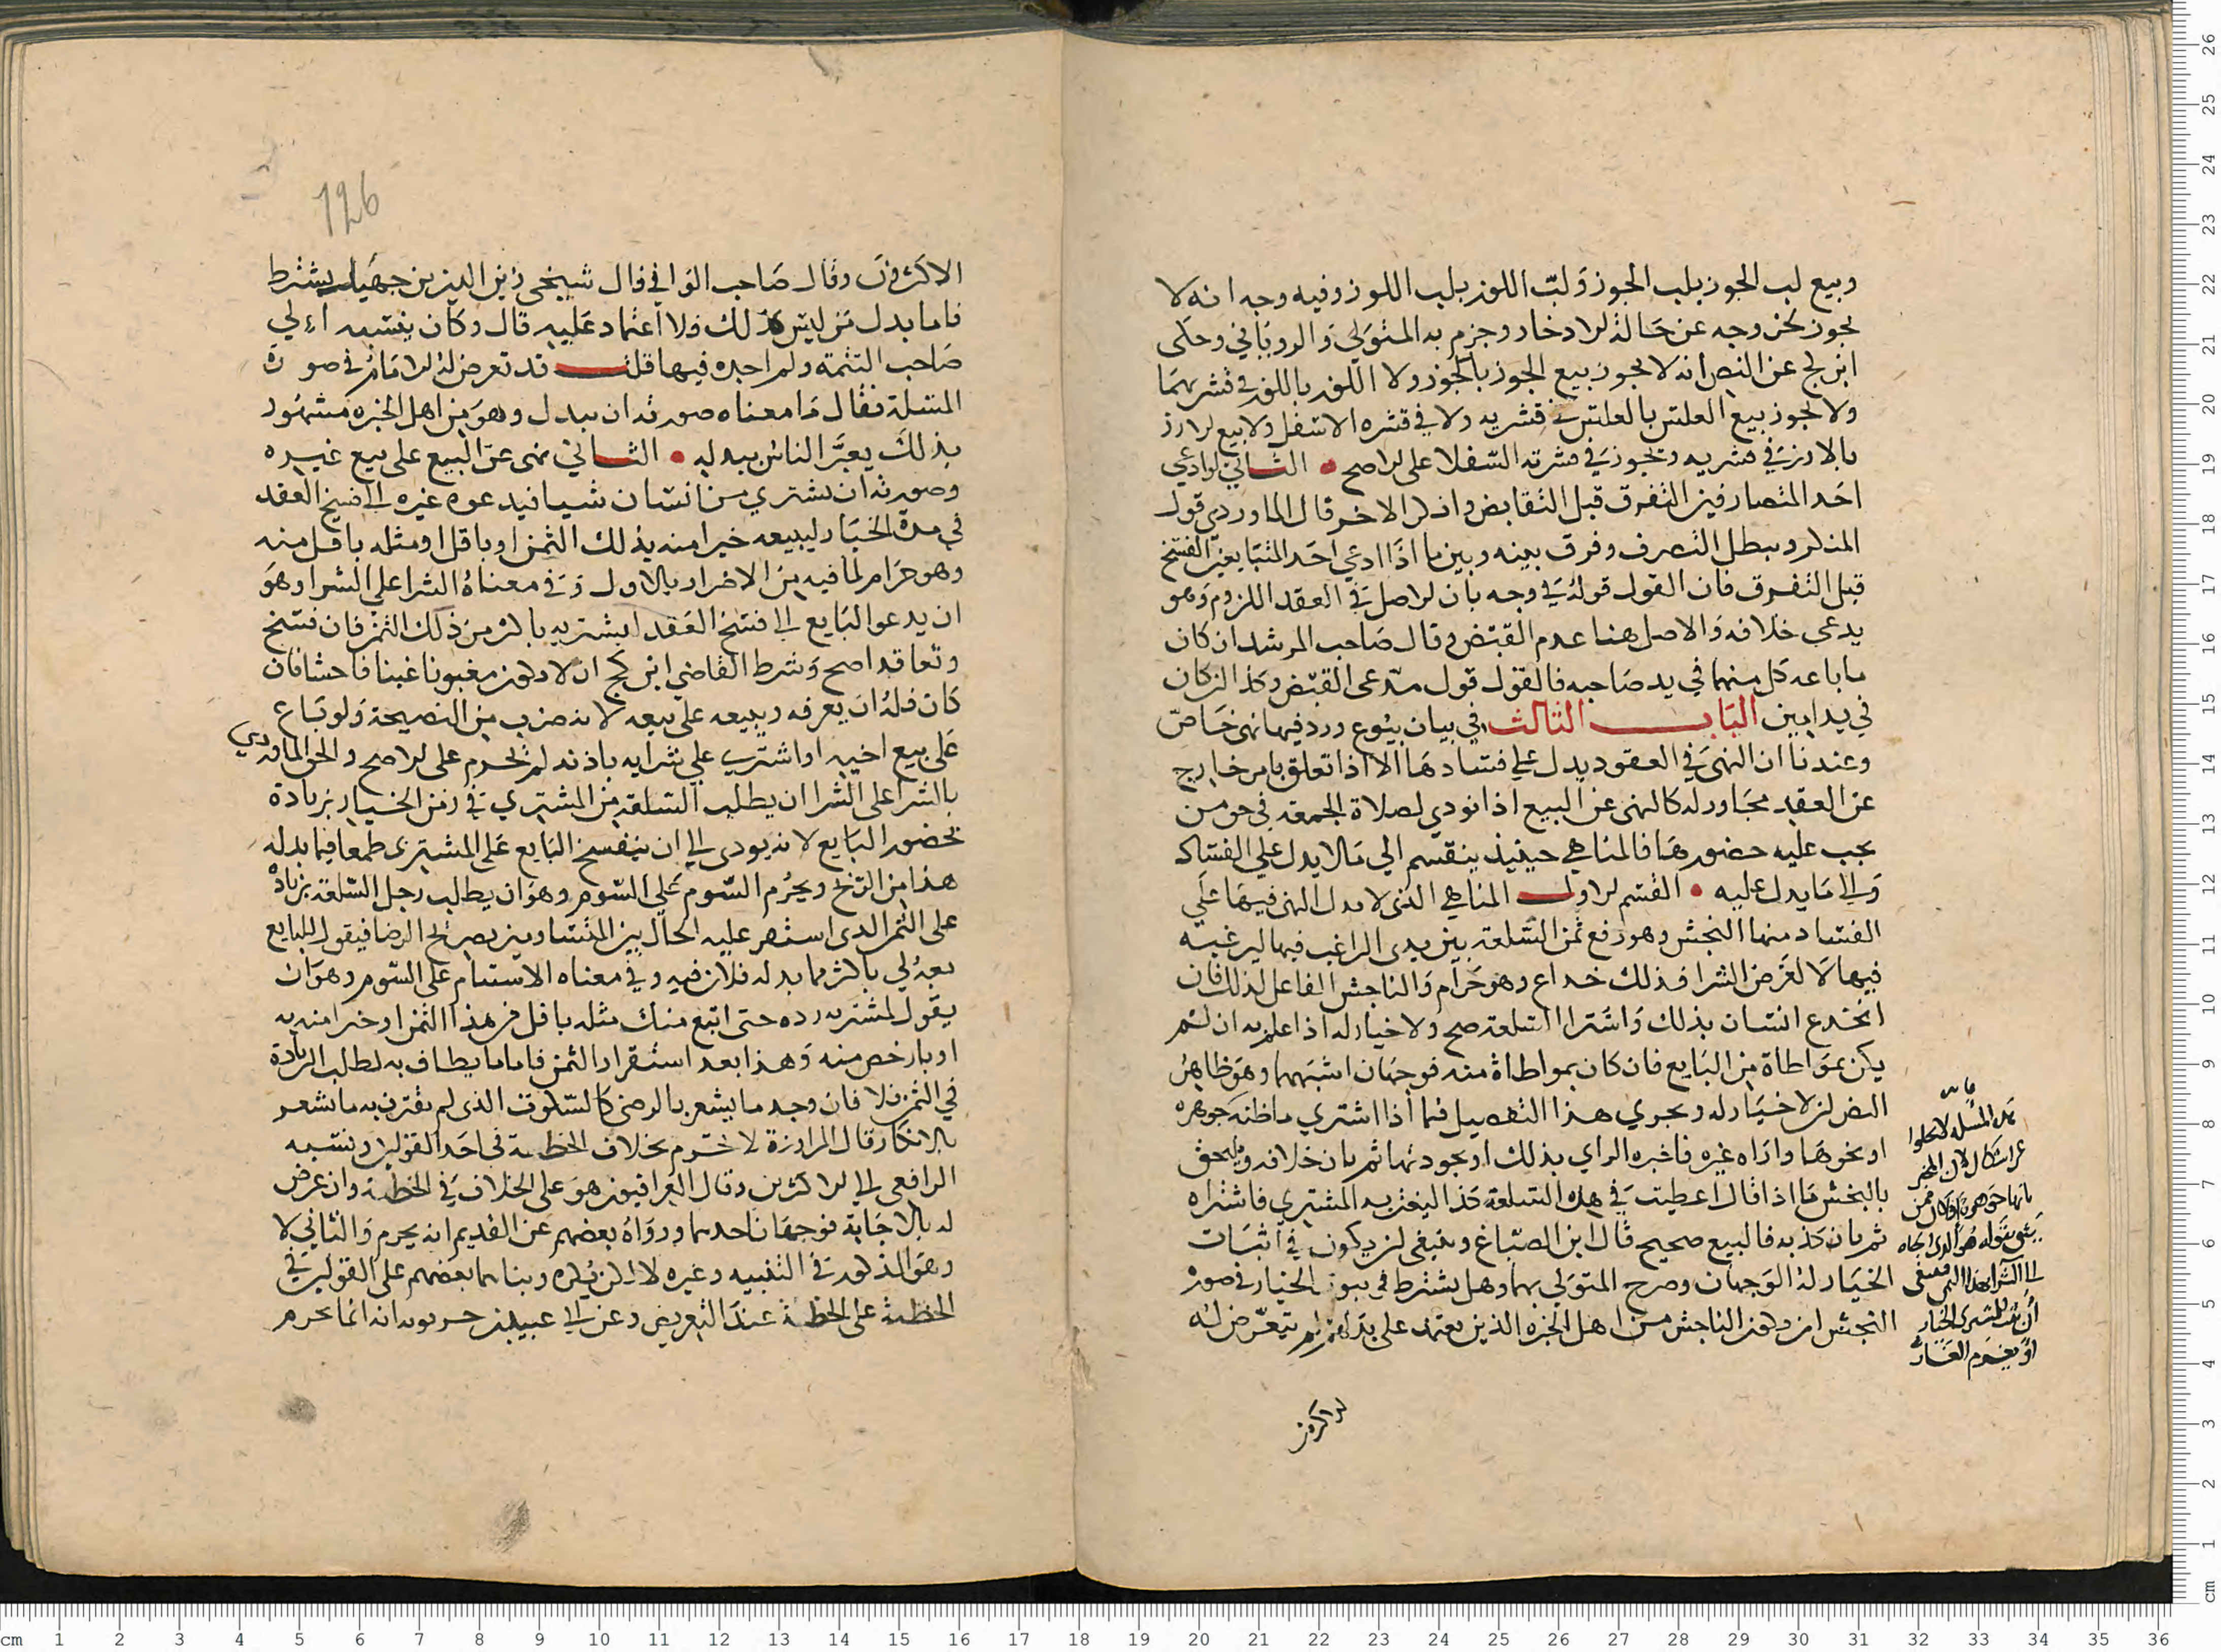 وبيع لب الجوز بلب الجوز ولب اللوز بلب اللوز وفيه وجه انه لا
يجوز لخروجه عن حالة الادخار وجزم به المتولي والروياني وحكى
ابن كج عن النص انه لا يجوز بيع الجوز بالجوز ولا اللوز باللوز في قشريهما
ولا يجوز بيع العلس بالعلس في قشريه ولا في قشره الاسفل ولا بيع الارز
بالارز في قشريه ويجوز في قشرته السفلا على الاصح • الثاني لو ادعي
احد المتصارفين التفرق قبل التقابض وانكر الاخر قال الماوردي قول
المنكر ويبطل الصرف وفرق بينه وبين ما اذا ادعي احد المتبايعين الفسخ
قبل التفرق فان القول قوله في وجه بان الاصل في العقد اللزوم وهو
يدعي خلافه والاصل هنا عدم القبض وقال صاحب المرشد ان كان
ما باعه كل منهما في يد صاحبه فالقول قول مدعى القبض وكذا ان كان
في يد ابين الباب الثالث في بيان بيوع ورد فيها نهى خاص
وعندنا ان النهي في العقود يدل علي فسادها الا اذا تعلق بامر خارج
عن العقد مجاور له كالنهى عن البيع اذا نودي لصلاة الجمعة في حق من
يجب عليه حضورها فالمناهي حينيذ ينقسم الي ما لا يدل علي الفساد
والي ما يدل عليه • القسم الاول المناهي الذي لا يدل النهى فيها علي
الفساد منها النجش وهو رفع ثمن السلعة بين يدى الراغب فيها ليرغبه
فيها لا لغرض الشرا فذلك خداع وهو حرام والناجش الفاعل لذلك فان
انخدع انسان بذلك واشترا السلعة صح ولا خيار له اذا علم به ان لم
يكن عن مواطاة من البايع فان كان بمواطاة منه فوجهان اشبههما وهو ظاهر
النص ان لا خيار له ويجري هذا التفصيل فيما اذا اشتري ما ظنه جوهره
او نحوها واراه غيره فاخبره الراي بذلك او بجودتها ثم بان خلافه ويلحق
بالنجش ما اذا قال اعطيت في هذه السلعة كذا ليغتر به المشتري فاشتراه
ثم بان كذبه فالبيع صحيح قال ابن الصباغ وينبغي ان يكون في اثبات
الخيار له الوجهان وصرح المتولي بهما وهل يشترط في ثبوت الخيار في صورة
النجش ان يكون الناجش من اهل الخبرة الذين يعتمد على لم يتعرض له
الاكثرون
هذه المسلة لا تخلوا
عن اشكال لان المخبر
بانها جوهرة ان كان ممن
يثق بقوله هو الذي الجاه
الى الشرا بهذا الثمن فينبغي
ان يثبت للمشتري الخيار
او يغرم الغار
126
الاكثرون وقال صاحب الوافي قال شيخي زين الدين بن جهبل يشترط
فاما بدل من ليس كذلك فلا اعتماد عليه قال وكان ينسبه الي
صاحب التتمة ولم اجده فيها قلت قد تعرض له الامام في صورة
المسلة فقال ما معناه صورته ان يبدل وهو من اهل الخبره مشهور
بذلك يغتر الناس ببدله • الثاني نهى عن البيع على بيع غيره
وصورته ان يشتري من انسان شيا فيدعوه غيره الى فسخ العقد
في مدة الخيار ليبيعه خيرا منه بذلك الثمن او باقل او مثله باقل منه
وهو حرام لما فيه من الاضرار بالاول وفي معناه الشرا على الشرا وهو
ان يدعو البايع الي فسخ العقد ليشتريه باكثر من ذلك الثمن فان فسخ
وتعاقدا صح وشرط القاضي ابن كج ان لا يكون مغبونا غبنا فاحشا فان
كان فله ان يعرفه ويبيعه على بيعه لانه ضرب من النصيحة ولو باع
على بيع اخيه او اشترى علي شرايه باذنه لم يحرم على الاصح والحق الماوردي
بالشرا على الشرا ان يطلب السلعة من المشتري في زمن الخيار بزيادة
بحضور البايع لانه يودى الي ان يفسخ البايع على المشتري طمعا فيما بدله
هذا من الربح ويحرم السوم علي السوم وهو ان يطلب رجل السلعة بزيادة
على الثمن الذى استقر عليه الحال بين المتساومين بصريح الرضا فيقول للبايع
بعه لي باكثر مما بدله فلان فيه وفي معناه الاستيام على السوم وهو ان
يقول للمشتري رده حتى ابيع منك مثله باقل من هذا الثمن او خيرا منه به
او بارخص منه وهذا بعد استقرار الثمن فاما ما يطاف به لطلب الزيادة
في الثمن فلا فان وجد ما يشعر بالرضى كالسكوت الذى لم يقترن به ما يشعر
بالانكار قال المراوزة لا تحرم بخلاف الخطبة في احد القولين ونسبه
الرافعي الي الاكثرين وقال العراقيون هو على الخلاف في الخطبة وان عرض
له بالاجابة فوجهان احدهما ورواه بعضهم عن القديم انه يحرم والثاني لا
وهو المذكور في التنبيه وغيره لا لكن يكره وبناهما بعضهم على القولين في
الخطبة على الخطبة عند التعريض وعن ابي عبيد بن حربويه انه انما يحرم